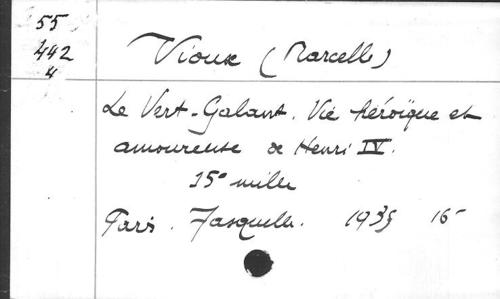 55
442
4
Vioux (Marcelle)
Le Vert-Galant. Vie héroïque et
amoureuse de Henri IV.
15e mille
Paris. Fasquelle. 1935 16-